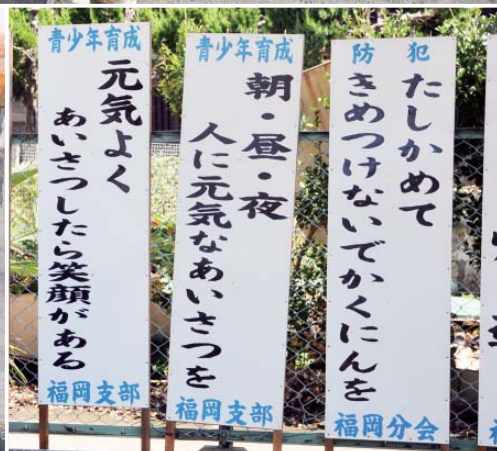 青少年育成
元気よく
あいさつしたら笑顔がある
福岡支部
青少年育成
朝・昼・夜
人に元気なあいさつを
福岡支部
防犯
たしかめて
きめつけないでかくにんを
福岡分会